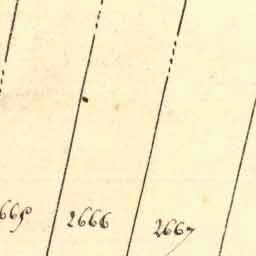 665 2666 2667